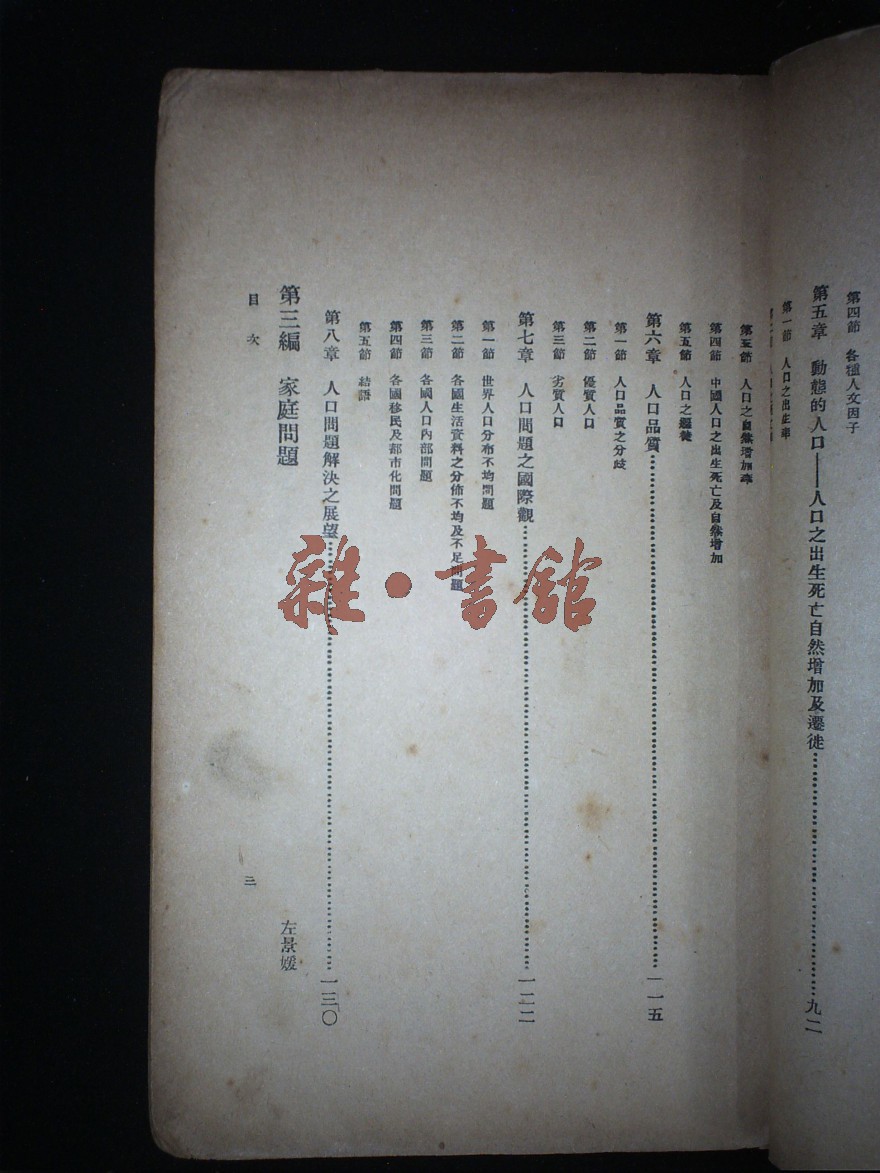 第四節 各種人文因子
第五章 動態的人口——人口之出生死亡自然增加及遷徙……九二
第一節 人口之出生率
第三節 人口之自然增加率
第四節 中國人口之出生死亡及自然增加
第五節 人口之遷徙
第六章 人口品質……一一五
第一節 人口品質之分歧
第二節 優質人口
第三節 劣質人口
第七章 人口問題之國際觀……一二二
第一節 世界人口分布不均問題
第二節 各國生活資料之分佈不均及不足問題
第三節 各國人口內部問題
第四節 各國移民及都市化問題
第五節 結語
第八章 人口問題解決之展望……一三〇
第三編 家庭問題 左景媛
目次 三
雜·書館